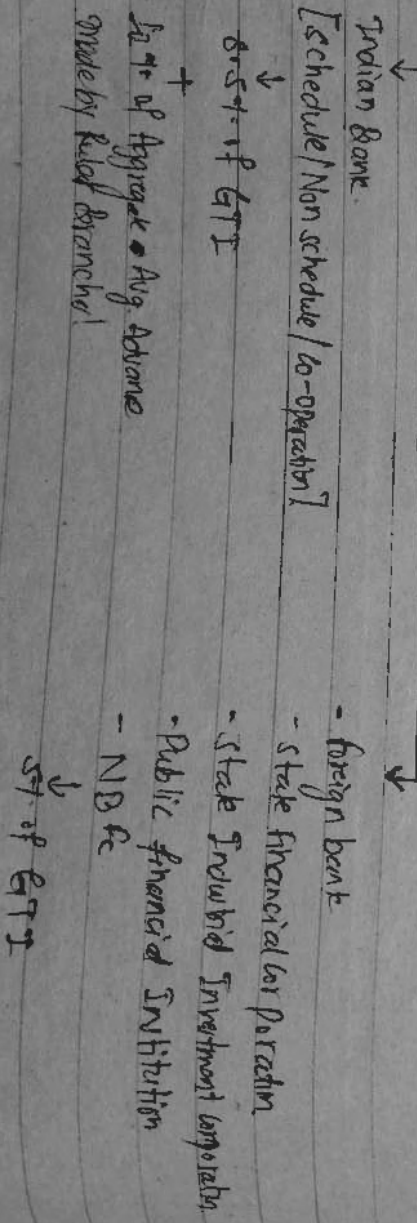 Indian Bank.
[schedule/Non schedule/Co-operation]
8.5% of GTI
+
10% of Aggregate Avg. Advance
made by Rural Branches!
- foreign bank
- state financial corporation
- state Industrial Investment corporation.
- Public financial Institution
- NBFC
5% of GTI